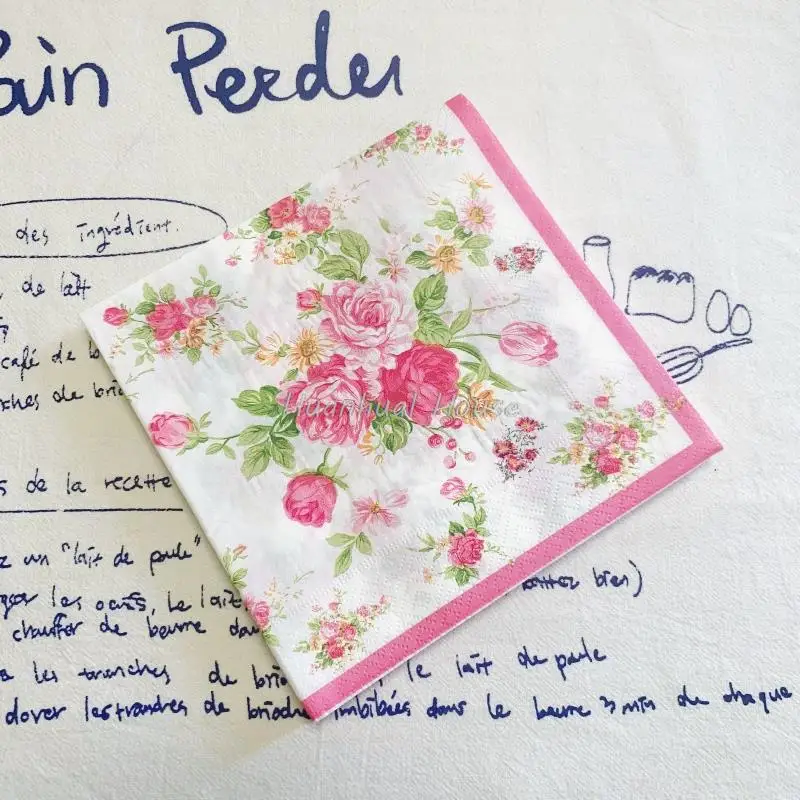 ain Perdu
des ingrédient.
de lait
café de
ches de brio
de la recette
un "lait de poule"
les oeufs, le lait
bien)
chauffer de beurre dan
les tranches de brio le lait de poule
dorer les tranches de brioche imbibées dans le beurre 3 min de chaque
Huanhual House